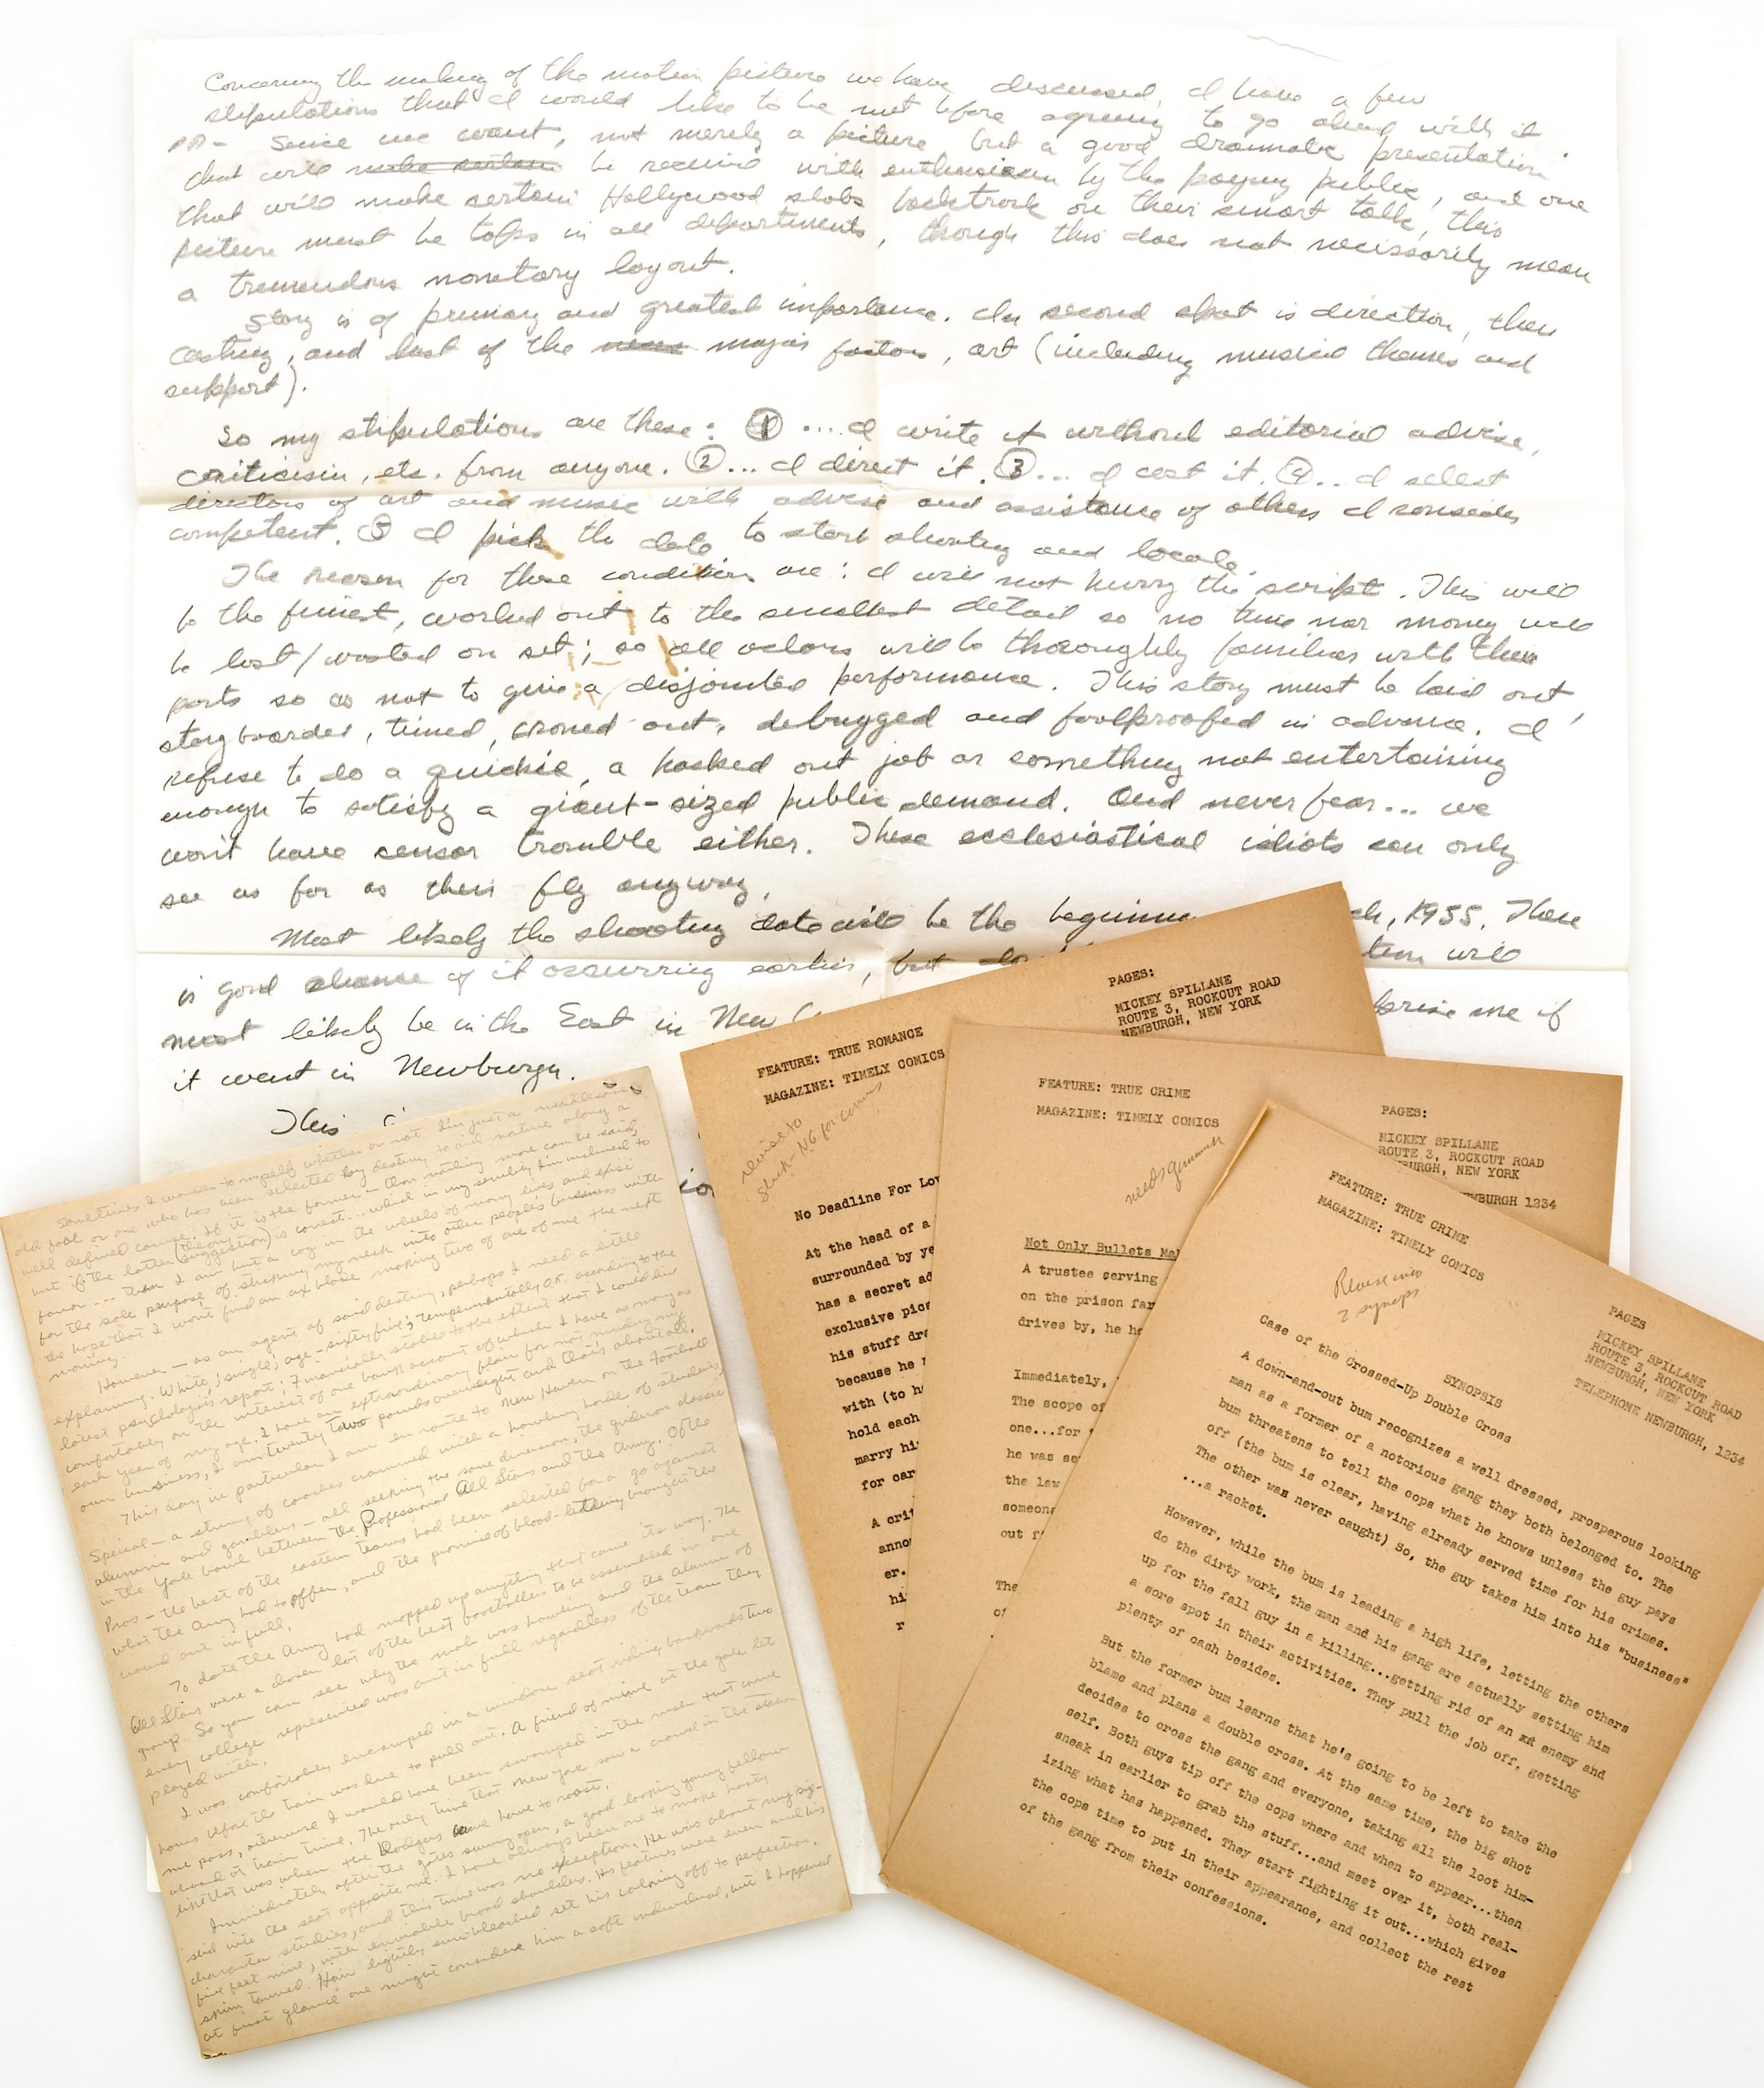 Concerning the making of the motion picture we have discussed, I have a few
stipulations that I would like to be met before agreeing to go ahead with it
Since we want, not merely a picture but a good dramatic presentation
that will make certain be received with enthusiasm by the paying public, and one
that will make certain Hollywood slobs backtrack on their smart talk, this
picture must be tops in all departments, though this does not necessarily mean
a tremendous monetary layout.
Story is of primary and greatest importance. In second spot is direction, then
casting, and last of the major factors, art (including musical themes and
support).
So my stipulations are these: 1 ... I write it without editorial advise,
criticism, etc. from anyone. 2 ... I direct it. 3 ... I cast it. 4 ... I select
directors of art and music with advise and assistance of others I consider
competent. 5 I pick the date to start shooting and locale.
The reason for these conditions are: I will not hurry the script. This will
be the finest, worked out to the smallest detail so no time nor money will
be lost/wasted on set; so all actors will be thoroughly familiar with their
parts so as not to give a disjointed performance. This story must be laid out,
storyboarded, timed, ironed out, debugged and foolproofed in advance. I
refuse to do a quickie, a hacked out job or something not entertaining
enough to satisfy a giant-sized public demand. And never fear... we
won't have censor trouble either. These ecclesiastical idiots can only
see as far as their fly anyway.
Most likely the shooting date will be the beginning 1955. There
is good chance of it occurring earlier, but will
most likely be in the East in New me if
it went in Newburgh.
This
Sometimes I wonder to myself whether or not I'm just a meddlesome
old fool or one who has been selected by destiny to aid nature along a
well defined course. If it is the former - then nothing more can be said,
but if the latter (theory suggestion) is correct... which in my senility I'm inclined to
favor --- then I am but a cog in the wheels of many lives and exist
for the sole purpose of sticking my neck into other people's business with
the hope that I won't find an axe blade making two of one of me the next
morning.
However - as an agent of said destiny, perhaps I need a little
explaining. White; single; age - sixty five; temperamentally O.K. according to the
latest psychologist's report; financially stable to the extent that I could live
comfortably on the interest of one bank account of which I have as many as
each year of my age. I have an extraordinary flair for not minding my
own business, I am twenty two pounds overweight and that's about all.
This day in particular I am en route to New Haven on the Football
Special - a string of coaches crammed with a howling horde of students,
alumni and gamblers - all seeking the same diversion, the gridiron classic
in the Yale bowl between the Professional All Stars and the Army. Of the
Pros - the best of the eastern teams had been selected for a go against
what the Army had to offer, and the promise of blood-letting brought the
crowd out in full.
To date the Army had mopped up anything that came its way. The
All Stars were a chosen lot of the best footballers to be assembled in one
group. So you can see why the mob was howling and the alumni of
every college represented was out in full regardless of the team they
played with.
I was comfortably encamped in a window seat riding backwards two
hours before the train was due to pull out. A friend of mine at the gate let
me pass, otherwise I would have been swamped in the rush that came
ahead of train time. The only time that New York saw a crowd in the station
like that was when the Dodgers came home to roost.
Immediately after the gates swung open, a good looking young fellow
slid into the seat opposite me. I have always been one to make hasty
character studies, and this time was no exception. He was about my size-
five feet nine, with enviable broad shoulders. His features were even and his
skin tanned. Hair lightly sun-bleached set his coloring off to perfection.
at first glance one might consider him a soft individual, but I happened
PAGES:
MICKEY SPILLANE
ROUTE 3, ROCKCUT ROAD
NEWBURGH, NEW YORK
FEATURE: TRUE ROMANCE
MAGAZINE: TIMELY COMICS
revise to
slick - NG for comics
No Deadline For Lov
At the head of a
surrounded by ye
has a secret ad
exclusive pic
his stuff dr
because he
with (to h
hold each
marry hi
for car
A cri
anno
er.
hi
r
FEATURE: TRUE CRIME
MAGAZINE: TIMELY COMICS
PAGES:
MICKEY SPILLANE
ROUTE 3, ROCKCUT ROAD
BURGH, NEW YORK
NEWBURGH 1234
needs gimmick
Not Only Bullets Ma
A trustee serving
on the prison far
drives by, he ho
Immediately,
The scope of
one...for
he was se
the law
someone
out f
The
of
FEATURE: TRUE CRIME
MAGAZINE: TIMELY COMICS
Revise into
2 synops
PAGES
MICKEY SPILLANE
ROUTE 3, ROCKCUT ROAD
NEWBURGH, NEW YORK
TELEPHONE NEWBURGH, 1234
SYNOPSIS
Case of the Crossed-Up Double Cross
A down-and-out bum recognizes a well dressed, prosperous looking
man as a former of a notorious gang they both belonged to. The
bum threatens to tell the cops what he knows unless the guy pays
off (the bum is clear, having already served time for his crimes.
The other was never caught) So, the guy takes him into his "business"
...a racket.
However, while the bum is leading a high life, letting the others
do the dirty work, the man and his gang are actually setting him
up for the fall guy in a killing...getting rid of an enemy and
a sore spot in their activities. They pull the job off, getting
plenty of cash besides.
But the former bum learns that he's going to be left to take the
blame and plans a double cross. At the same time, the big shot
decides to cross the gang and everyone, taking all the loot him-
self. Both guys tip off the cops where and when to appear...then
sneak in earlier to grab the stuff...and meet over it, both real-
izing what has happened. They start fighting it out...which gives
the cops time to put in their appearance, and collect the rest
of the gang from their confessions.